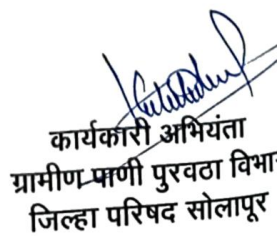 कार्यकारी अभियंता
ग्रामीण पाणी पुरवठा विभा
जिल्हा परिषद सोलापूर